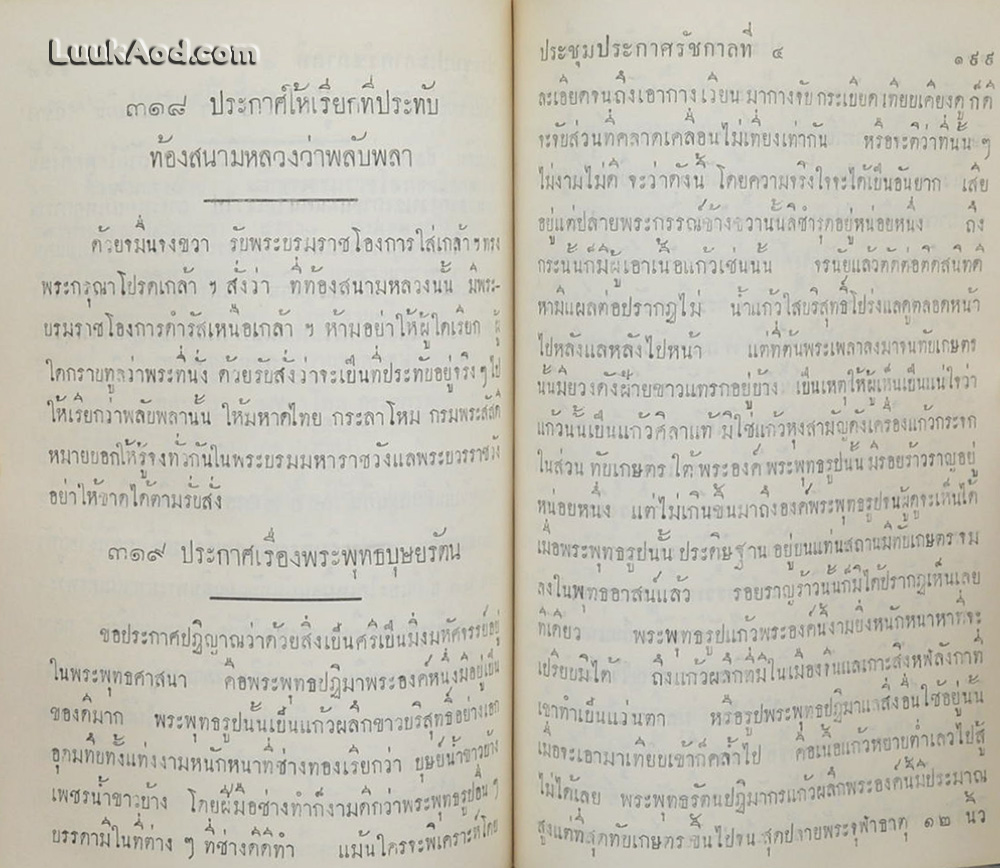 LuukAod.com
๓๑๘ ประกาศให้เรียกที่ประทับ
ท้องสนามหลวงว่าพลับพลา
ด้วยจมื่นจงขวา รับพระบรมราชโองการใส่เกล้า ฯ ทรง
พระกรุณาโปรดเกล้า ฯ สั่งว่า ที่ท้องสนามหลวงนั้น มีพระ-
บรมราชโองการดำรัสเหนือเกล้า ฯ ห้ามอย่าให้ผู้ใดเรียก ผู้
ใดกราบทูลว่าพระที่นั่ง ด้วยรับสั่งว่าจะเป็นที่ประทับอยู่จริง ๆ ไป
ให้เรียกว่าพลับพลานั้น ให้มหาดไทย กระลาโหม กรมพระสัสดี
หมายบอกให้รู้จงทั่วกันในพระบรมมหาราชวังแลพระบวรราชวัง
อย่าให้ขาดได้ตามรับสั่ง
๓๑๙ ประกาศเรื่องพระพุทธบุษยรัตน
ขอประกาศปฏิญาณว่าด้วยสิ่งเป็นศิริเป็นมิ่งมหัศจรรย์อยู่
ในพระพุทธศาสนา คือพระพุทธปฏิมาพระองค์หนึ่งมีอยู่เป็น
ของดีมาก พระพุทธรูปนั้นเป็นแก้วผลึกขาวบริสุทธิ์อย่างเอก
อุดมทึบทั้งแท่งงามหนักหนาที่ช่างทองเรียกว่า บุษย์น้ำขาวบ้าง
เพชรน้ำขาวบ้าง โดยฝีมือช่างทำก็งามดีกว่าพระพุทธรูปอื่น ๆ
บรรดามีในที่ต่าง ๆ ที่ช่างคิดทำ แม้นใครจะพิเคราะห์โดย
ประชุมประกาศรัชกาลที่ ๔ ๑๙๙
ละเอียดจนถึงเอากางเวียนมากางจับกระเบียดเทียบเคียงดู ก็ดี
จะจับส่วนที่คลาดเคลื่อนไม่เที่ยงเท่ากัน หรือจะติว่าที่นั้น ๆ
ไม่งามไม่ดี จะว่าดังนี้ โดยความจริงใจจะได้เป็นอันยาก เสีย
อยู่แต่ปลายพระกรรณ์ข้างขวานั้นลิชำรุดอยู่หน่อยหนึ่ง ถึง
กระนั้นก็มีผู้เอาเนื้อแก้วเช่นนั้น จรนัยแล้วตัดต่อติดสนิทดี
หามีแผลต่อปรากฏไม่ น้ำแก้วใสบริสุทธิ์โปร่งแลดูตลอดหน้า
ไปหลังแลหลังไปหน้า แต่ที่ต้นพระเพลาลงมาจนทับเกษตร
นั้นมียวงดังฝ้ายขาวแทรกอยู่บ้าง เป็นเหตุให้ผู้เห็นเป็นแน่ใจว่า
แก้วนั้นเป็นแก้วศิลาแท้ มิใช่แก้วหุงสามัญดังเครื่องแก้วกระจก
ในส่วน ทับเกษตร ใต้ พระองค์ พระพุทธรูปนั้น มีรอยร้าวราญอยู่
หน่อยหนึ่ง แต่ไม่เกินขึ้นมาถึงองค์พระพุทธรูปจนผู้ดูจะเห็นได้
เมื่อพระพุทธรูปนั้น ประดิษฐาน อยู่บนแท่นสถานมีทับเกษตร จม
ลงในพุทธอาสน์แล้ว รอยราญร้าวนั้นก็มิได้ปรากฏเห็นเลย
ทีเดียว พระพุทธรูปแก้วพระองค์นี้งามยิ่งหนักหนาหาที่จะ
เปรียบมิได้ ถึงแก้วผลึกที่มีในเมืองจีนและเกาะสิงหฬลังกาที่
เขาทำเป็นแว่นตา หรือรูปพระพุทธปฏิมาแลสิ่งอื่นใช้อยู่นั้น
เมื่อจะเอามาเทียบเข้าก็คล้ำไป คือเนื้อแก้วหยาบต่ำเลวไปสู้
ไม่ได้เลย พระพุทธรัตนปฏิมากรแก้วผลึกพระองค์นี้มีประมาณ
สูงแต่ที่สุดทับเกษตร ขึ้นไปจน สุดปลายพระจุฬาธาตุ ๑๒ นิ้ว